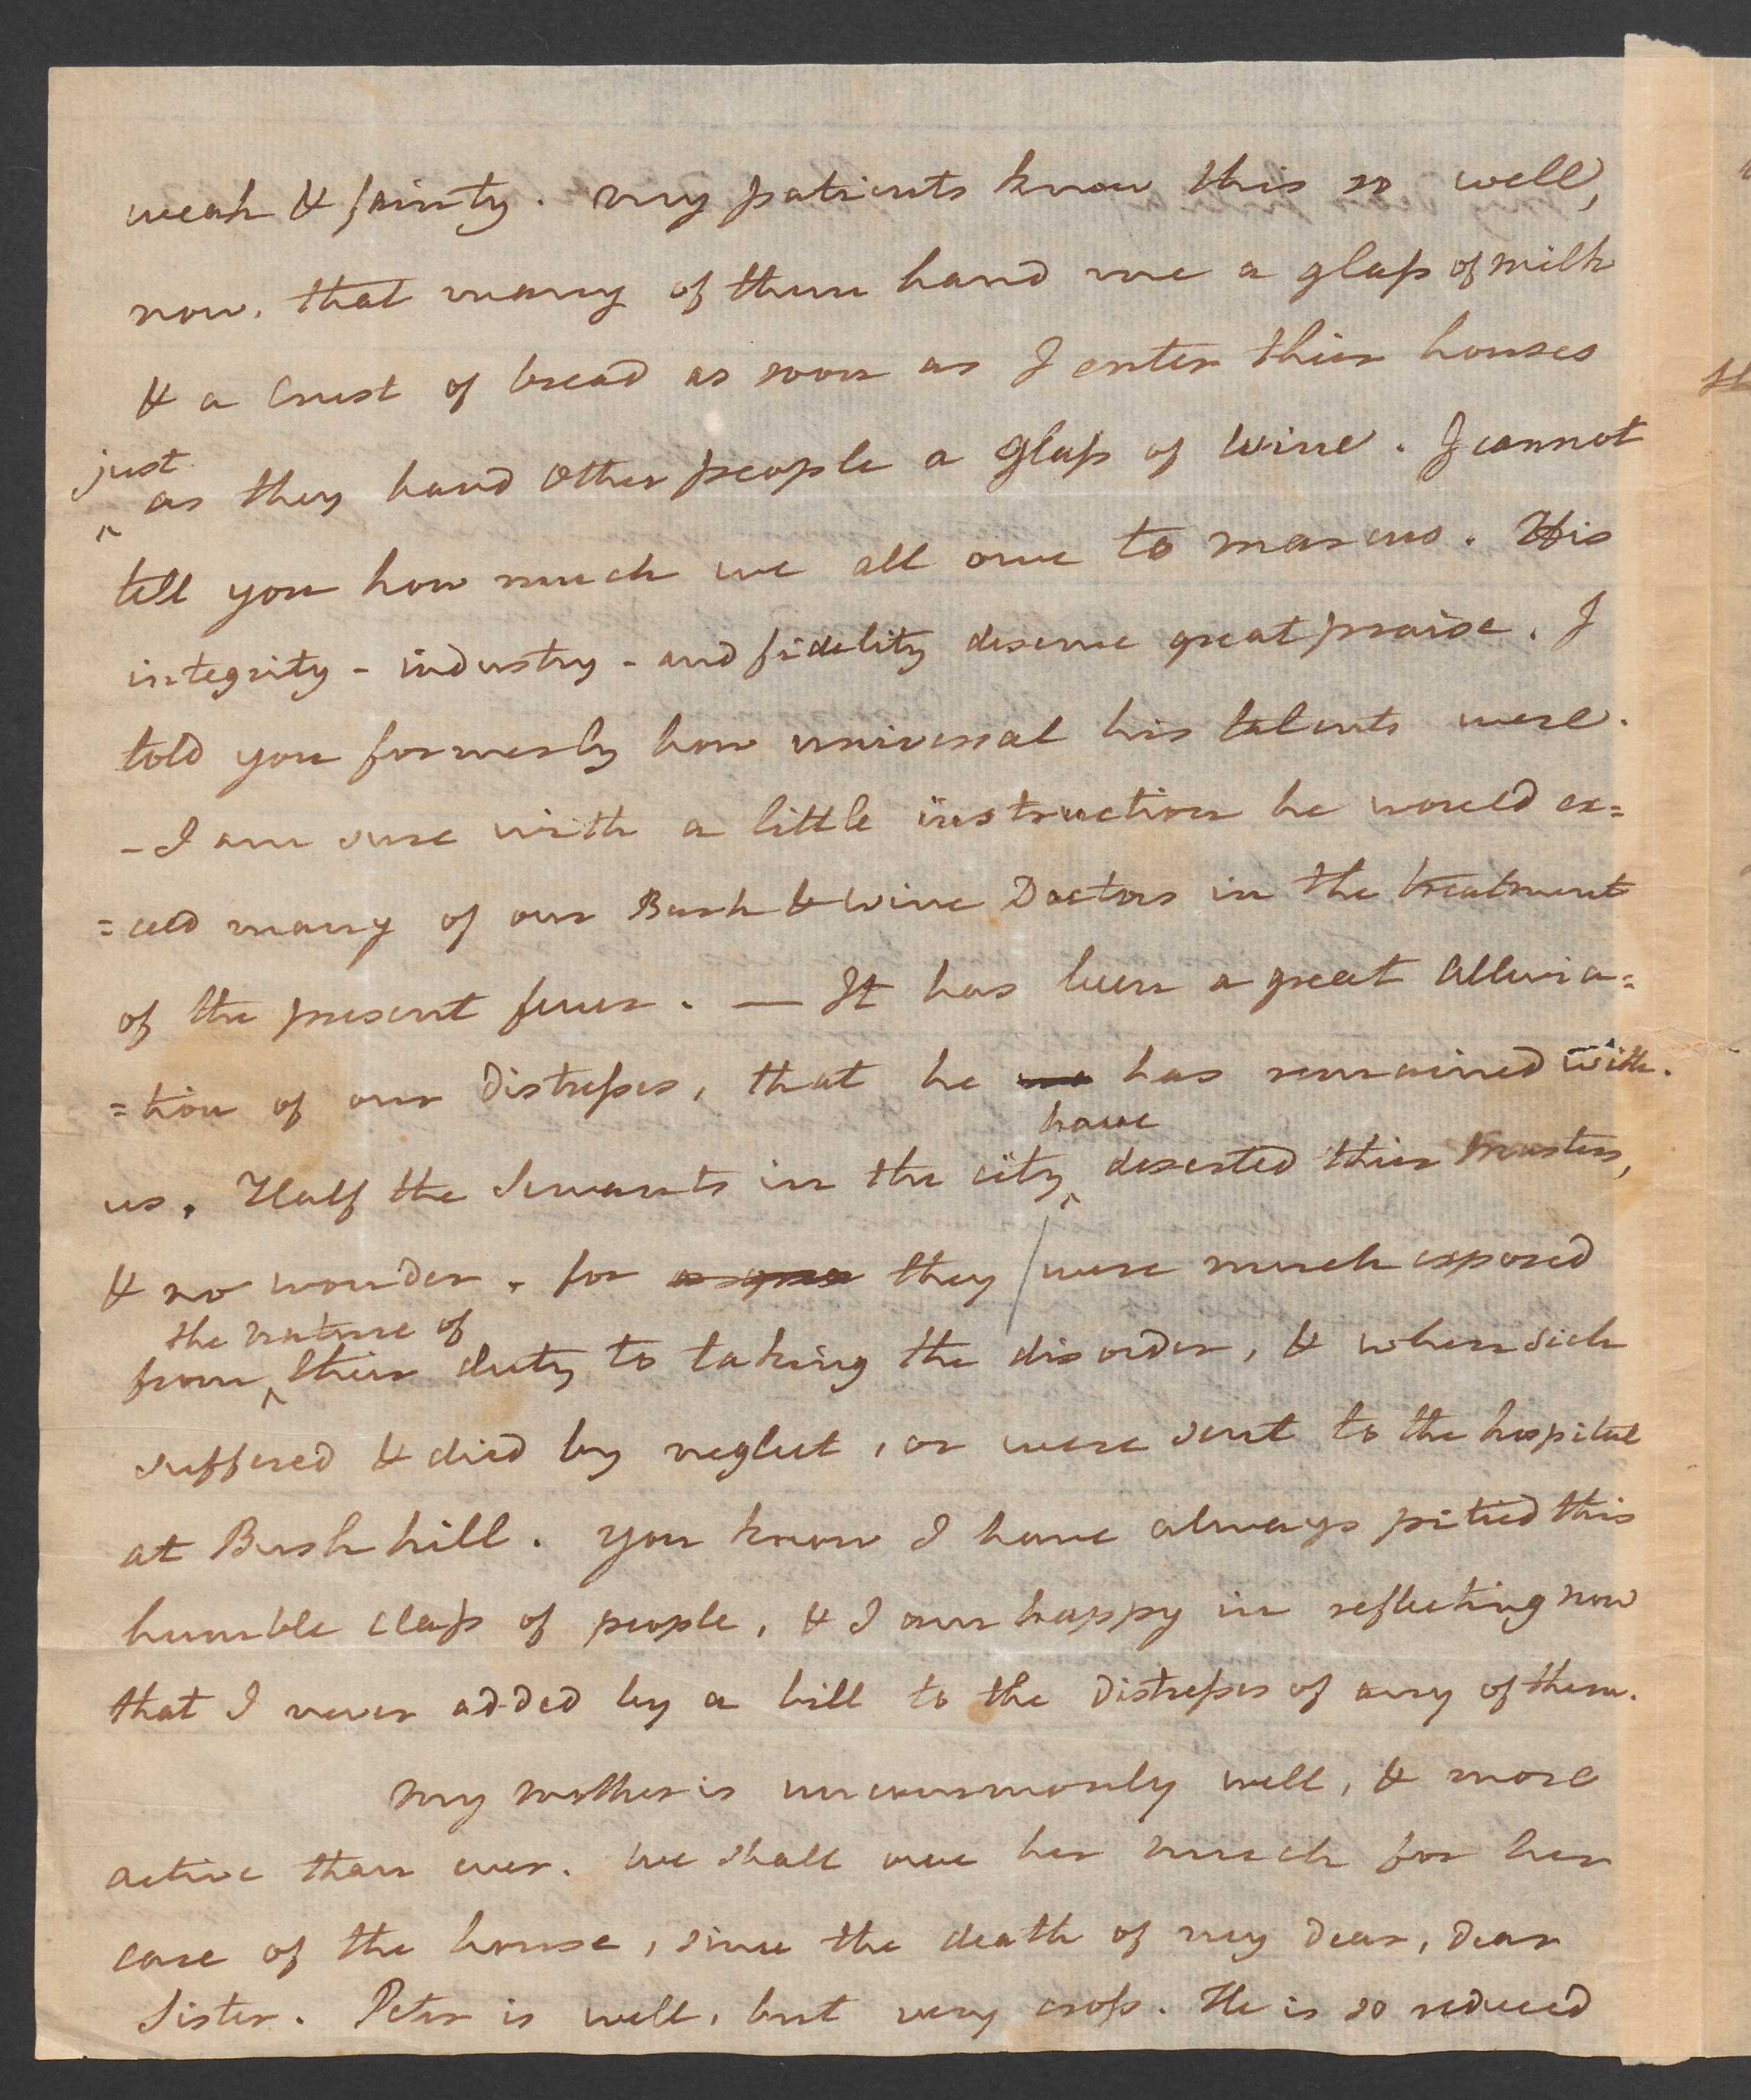 weak & fainty. my patients know this so well,
now, that many of them hand me a glass of milk
& a Crust of bread as soon as I enter their houses
just
as they hand other people a glass of wine. I cannot
^
tell you how much we all owe to Marcus. His
integrity - industry - and fidelity deserve great praise. I
told you formerly how universal his talents were.
- I am sure with a little instruction he would ex=
=ceed many of our Bark & wine Doctors in the treatment
of the present fever. — It has been a great Allevia=
=tion of our Distresses, that he has remained with.
have
us. Half the Servants in the city ^ deserted their masters,
& no wonder, for they / were much exposed
the nature of
from ^ their duty to taking the disorder, & when sick
suffered & died by neglect, or were sent to the hospital
at Bush hill. you know I have always pitied this
humble class of people, & I am happy in reflecting now
that I never added by a bill to the Distresses of any of them.
My mother is uncommonly well, & more
active than ever. We shall owe her much for her
care of the house, since the death of my dear, dear
Sister. Peter is well, but very cross. He is so reduced